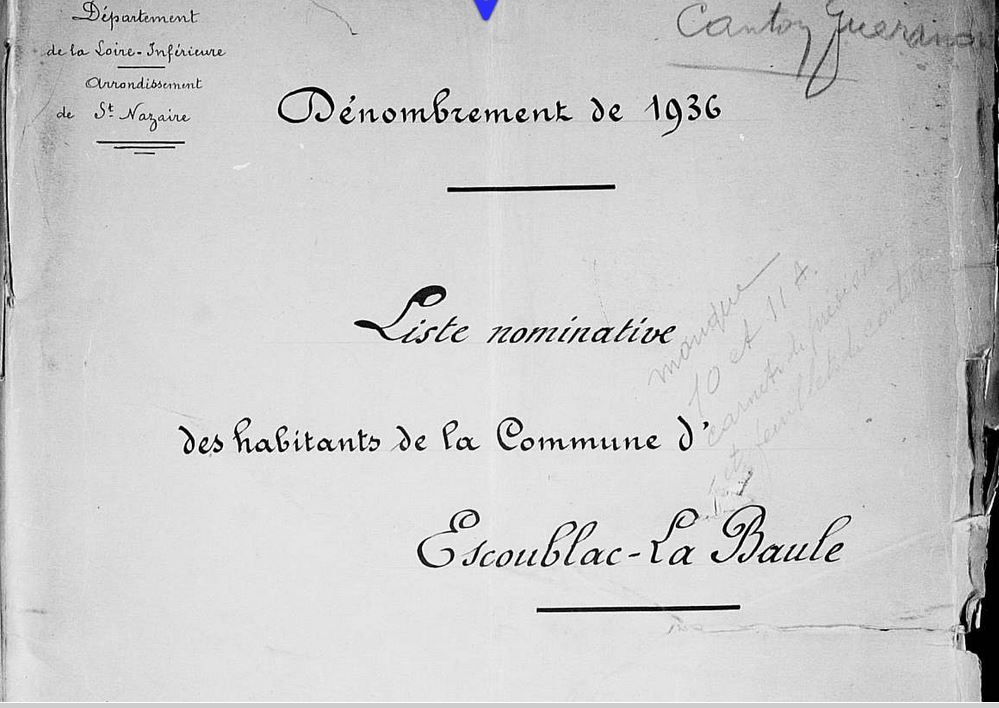 Département
de la Loire-Inférieure
Arrondissement
de St Nazaire
Canton Guérande
Dénombrement de 1936
Liste nominative
manque
10 et 11 A.
carnets de
et feuillets de
des habitants de la Commune d'
Escoublac-La Baule